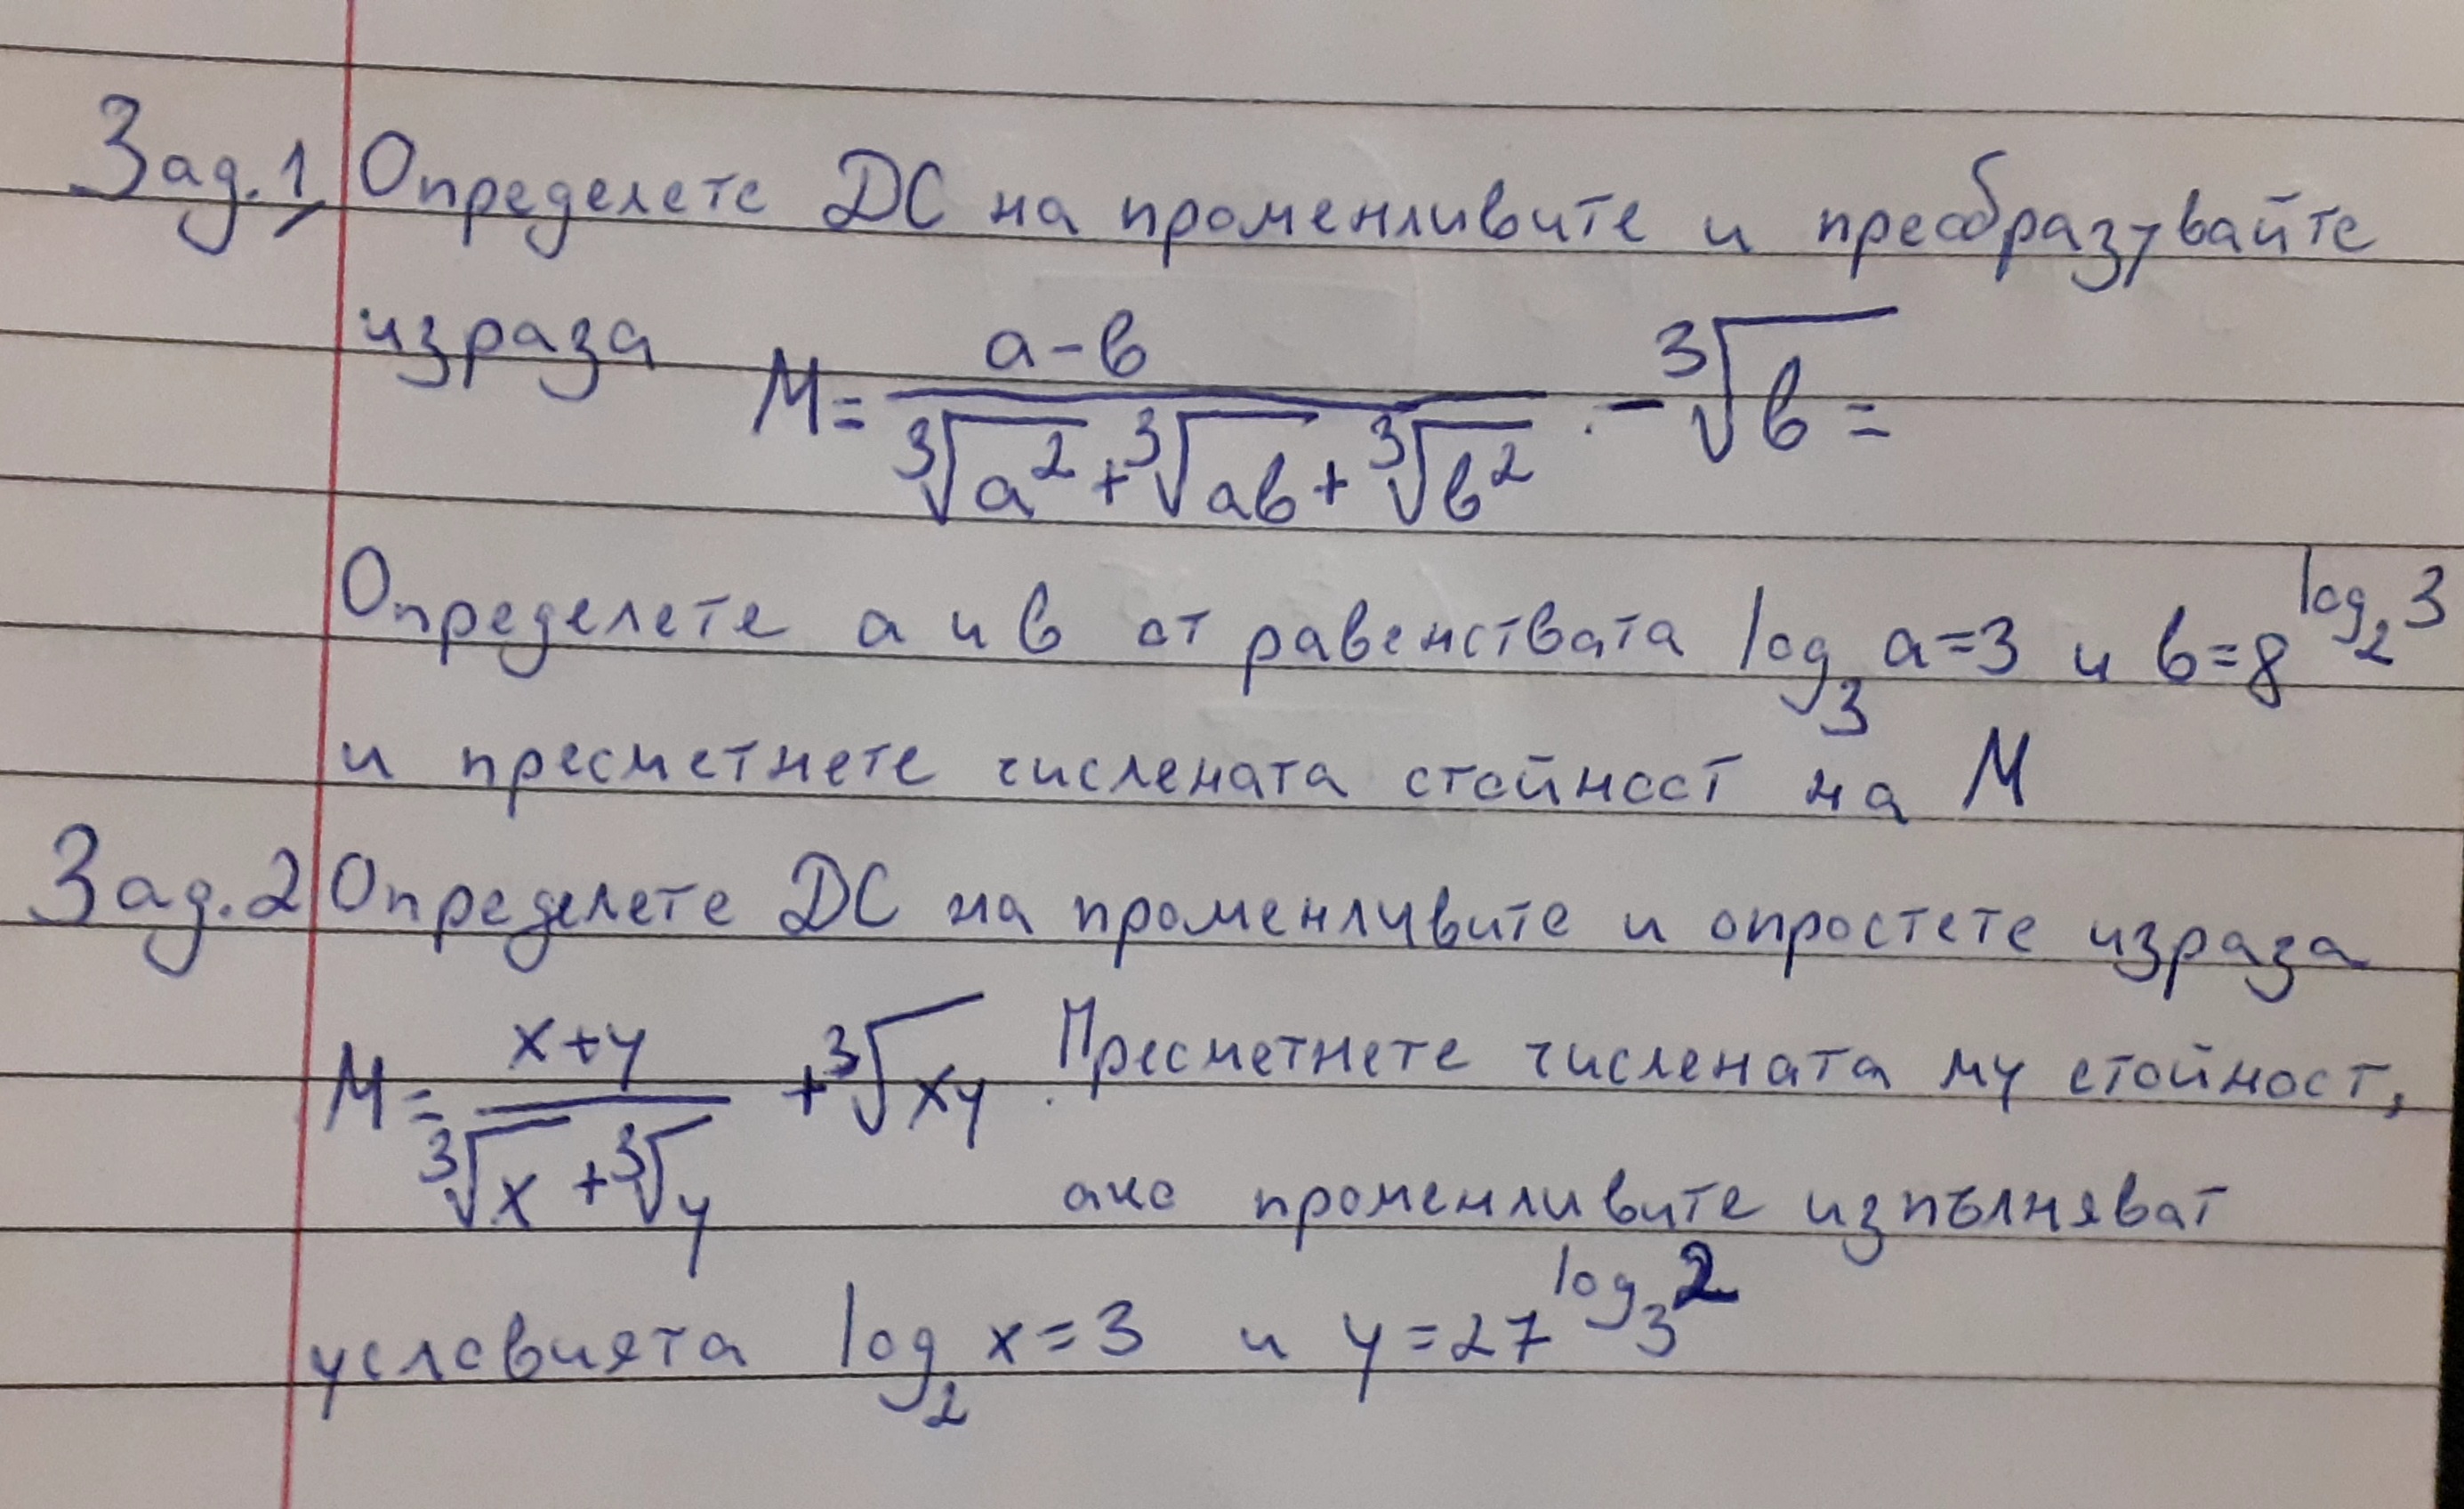 Зад.1, Определете ДС на променливите и преобразувайте
израза M = (a-b)/(∛a² + ∛ab + ∛b²) - ∛b =
Определете a и b от равенствата log₃ a=3 и b=8^(log₂3)
и пресметнете числената стойност на M
Зад.2 Определете ДС на променливите и опростете израза
M = (x+y)/(∛x + ∛y) + ∛xy. Пресметнете числената му стойност,
ако променливите изпълняват
условията log₂ x=3 и y=27^(log₃2)